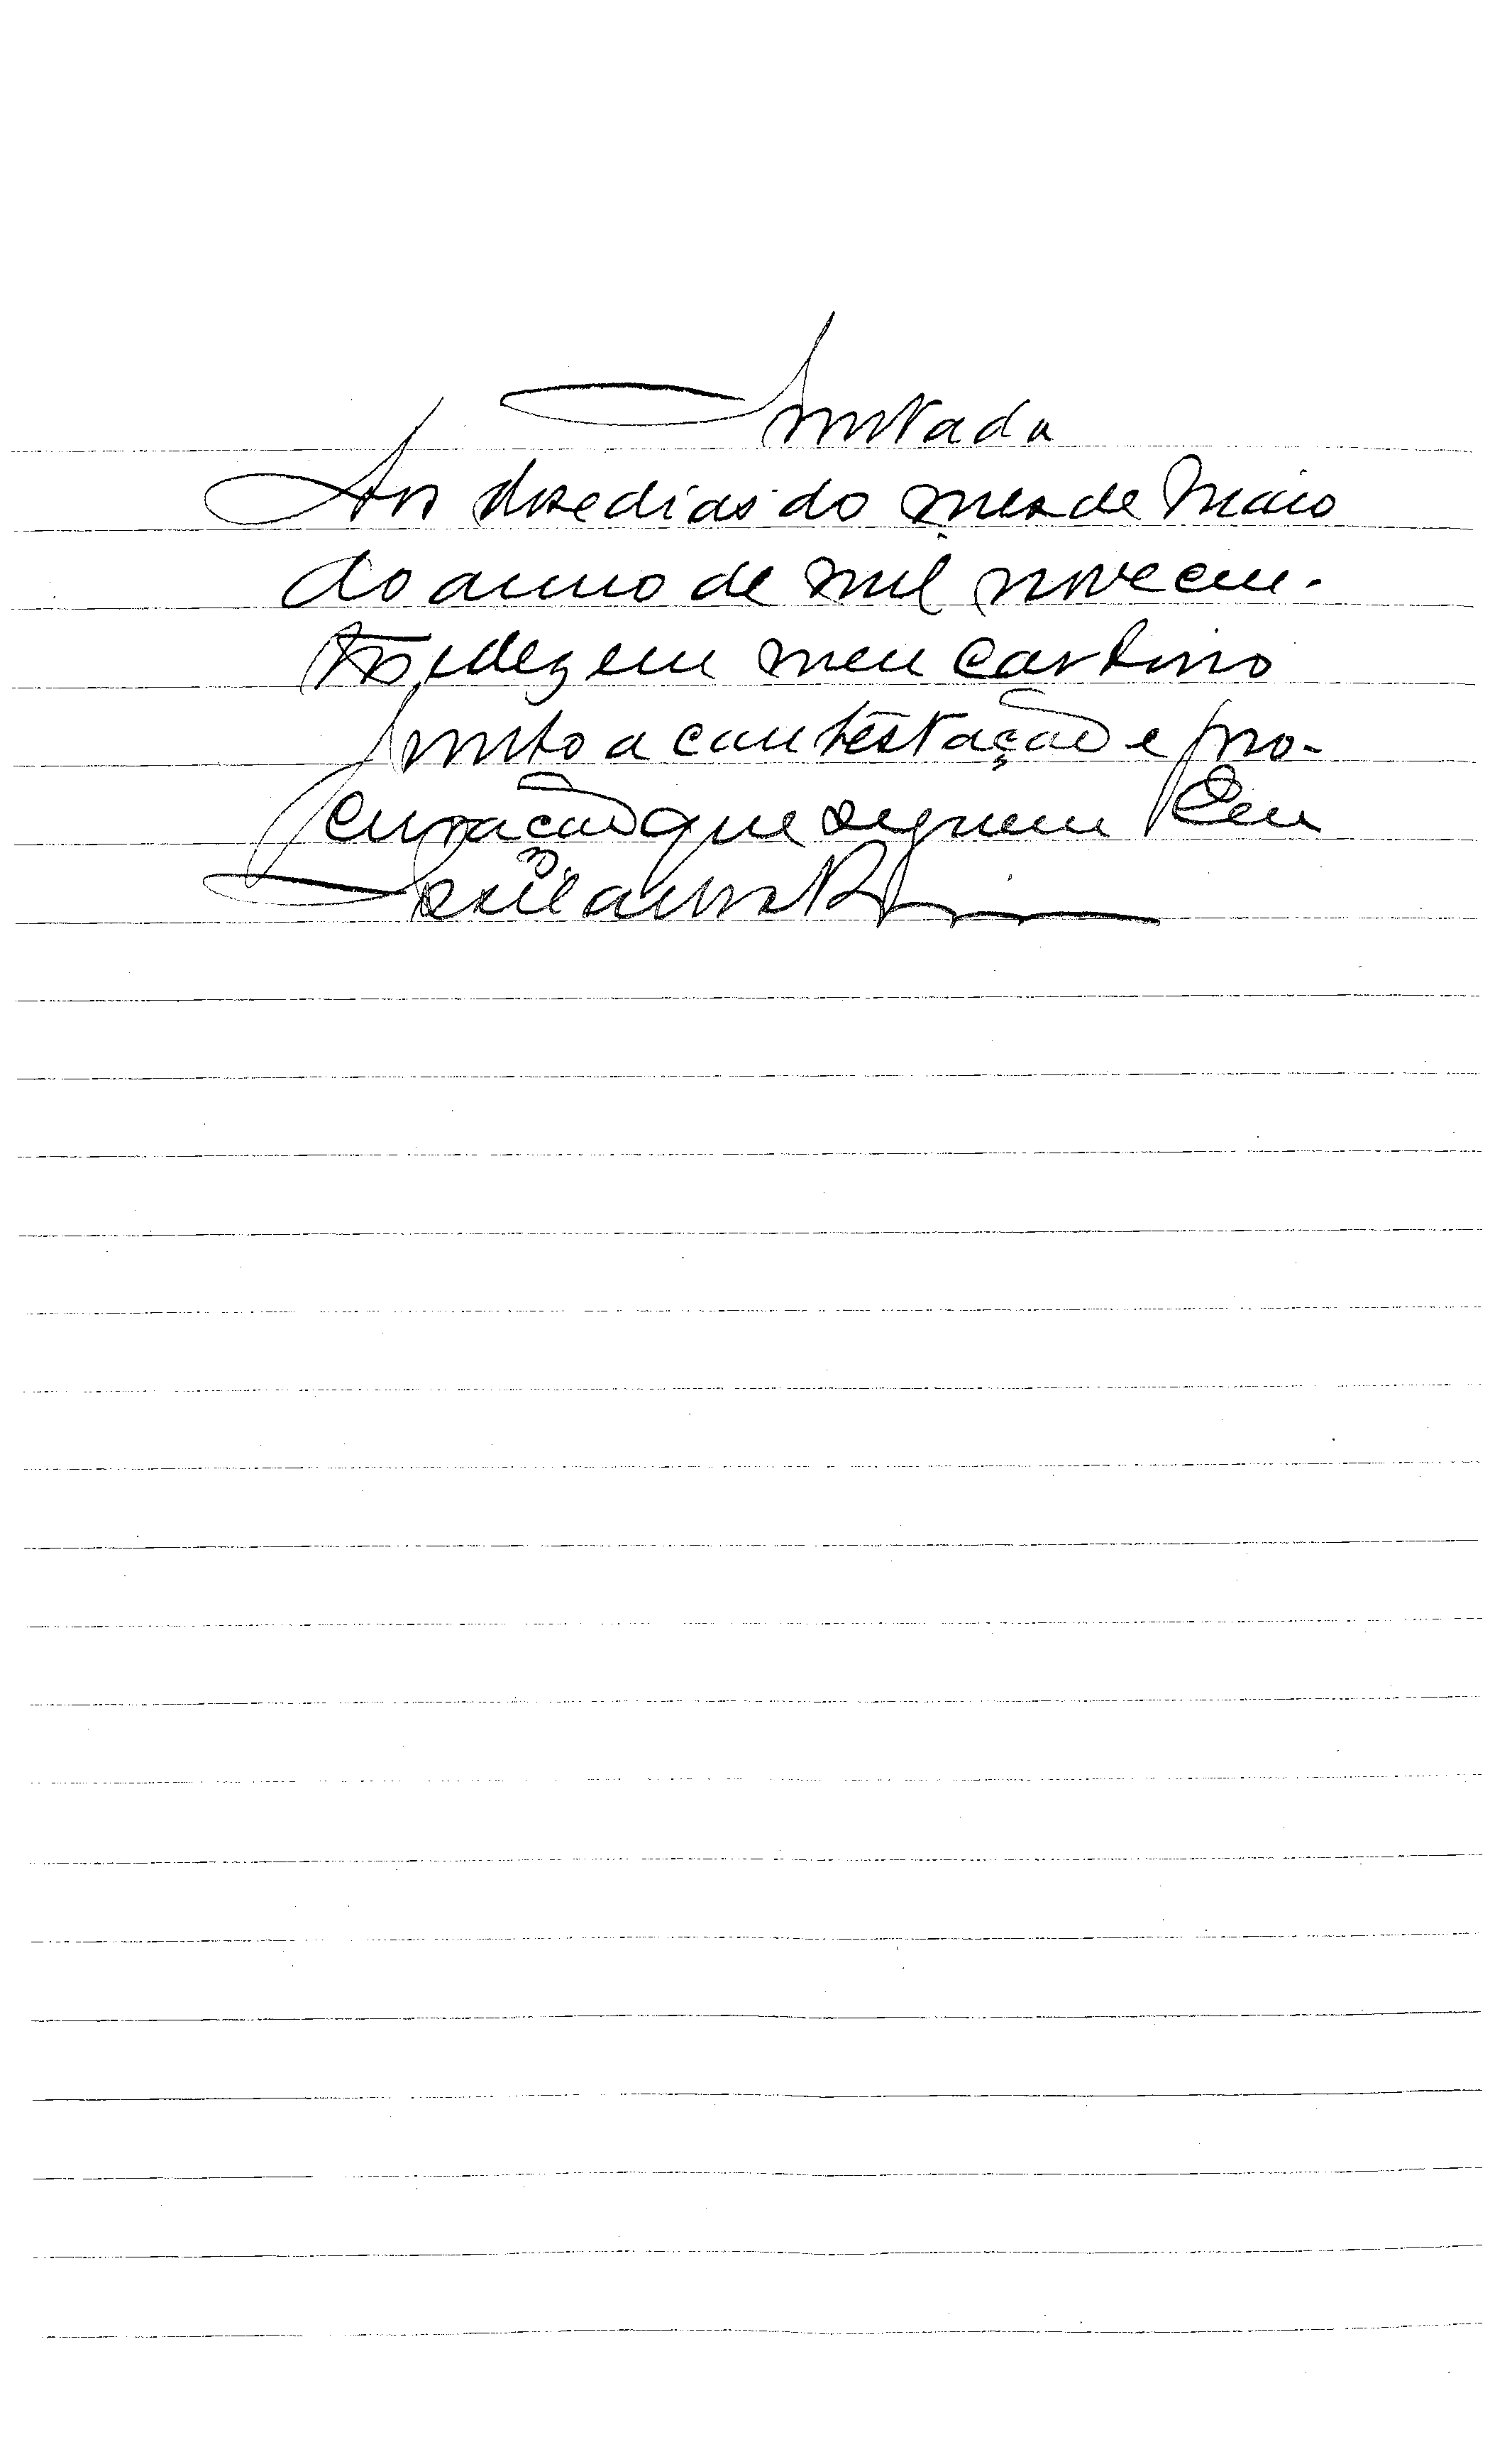 Juntada
Aos doze dias do mez de Maio
do anno de mil novecen-
tos e dez em meu cartorio
junto a contestação e pro-
curação que seguem Eu